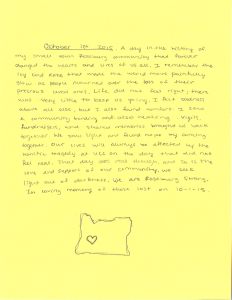 October 1st 2015. A day in the history of
my small town Roseburg community that forever
changed the hearts and lives of us all. I remember the
day and knew that made the world move painfully
slow as people mourned over the loss of their
precious loved ones. Life did not feel right, there
was very little to keep us going. I felt sadness
above all else, but I also found comfort. I saw
a community bonding and also healing. Vigils,
fundraisers, and shared memories brought us back
together. We saw light and found hope by coming
together. Our lives will always be affected by the
horrific tragedy at UCC on the day that did not
feel real. That day was real though, and so is the
love and support of our community. We seek
light out of darkness. We are Roseburg Strong.
In loving memory of those lost on 10-1-15.